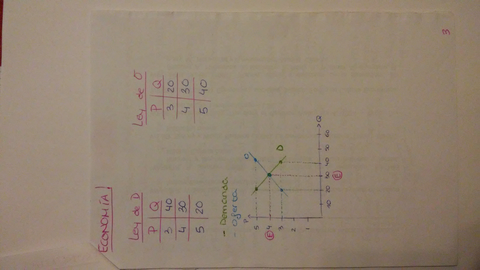 ECONOMÍA
Ley de D
P Q
3 40
4 30
5 20
Ley de O
P Q
3 20
4 30
5 40
- Demanda
- Oferta
P
5
4
3
2
1
E
O
D
10 20 30 40 50 60 Q
E
3